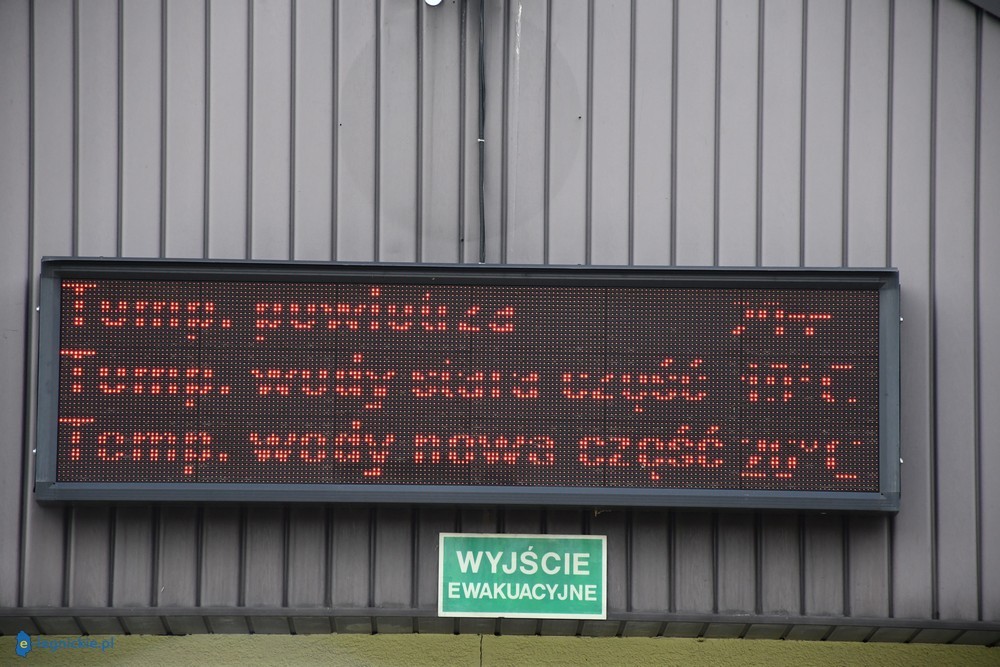 Temp. powietrza
Temp. wody stara część
Temp. wody nowa część 20°C
WYJŚCIE
EWAKUACYJNE